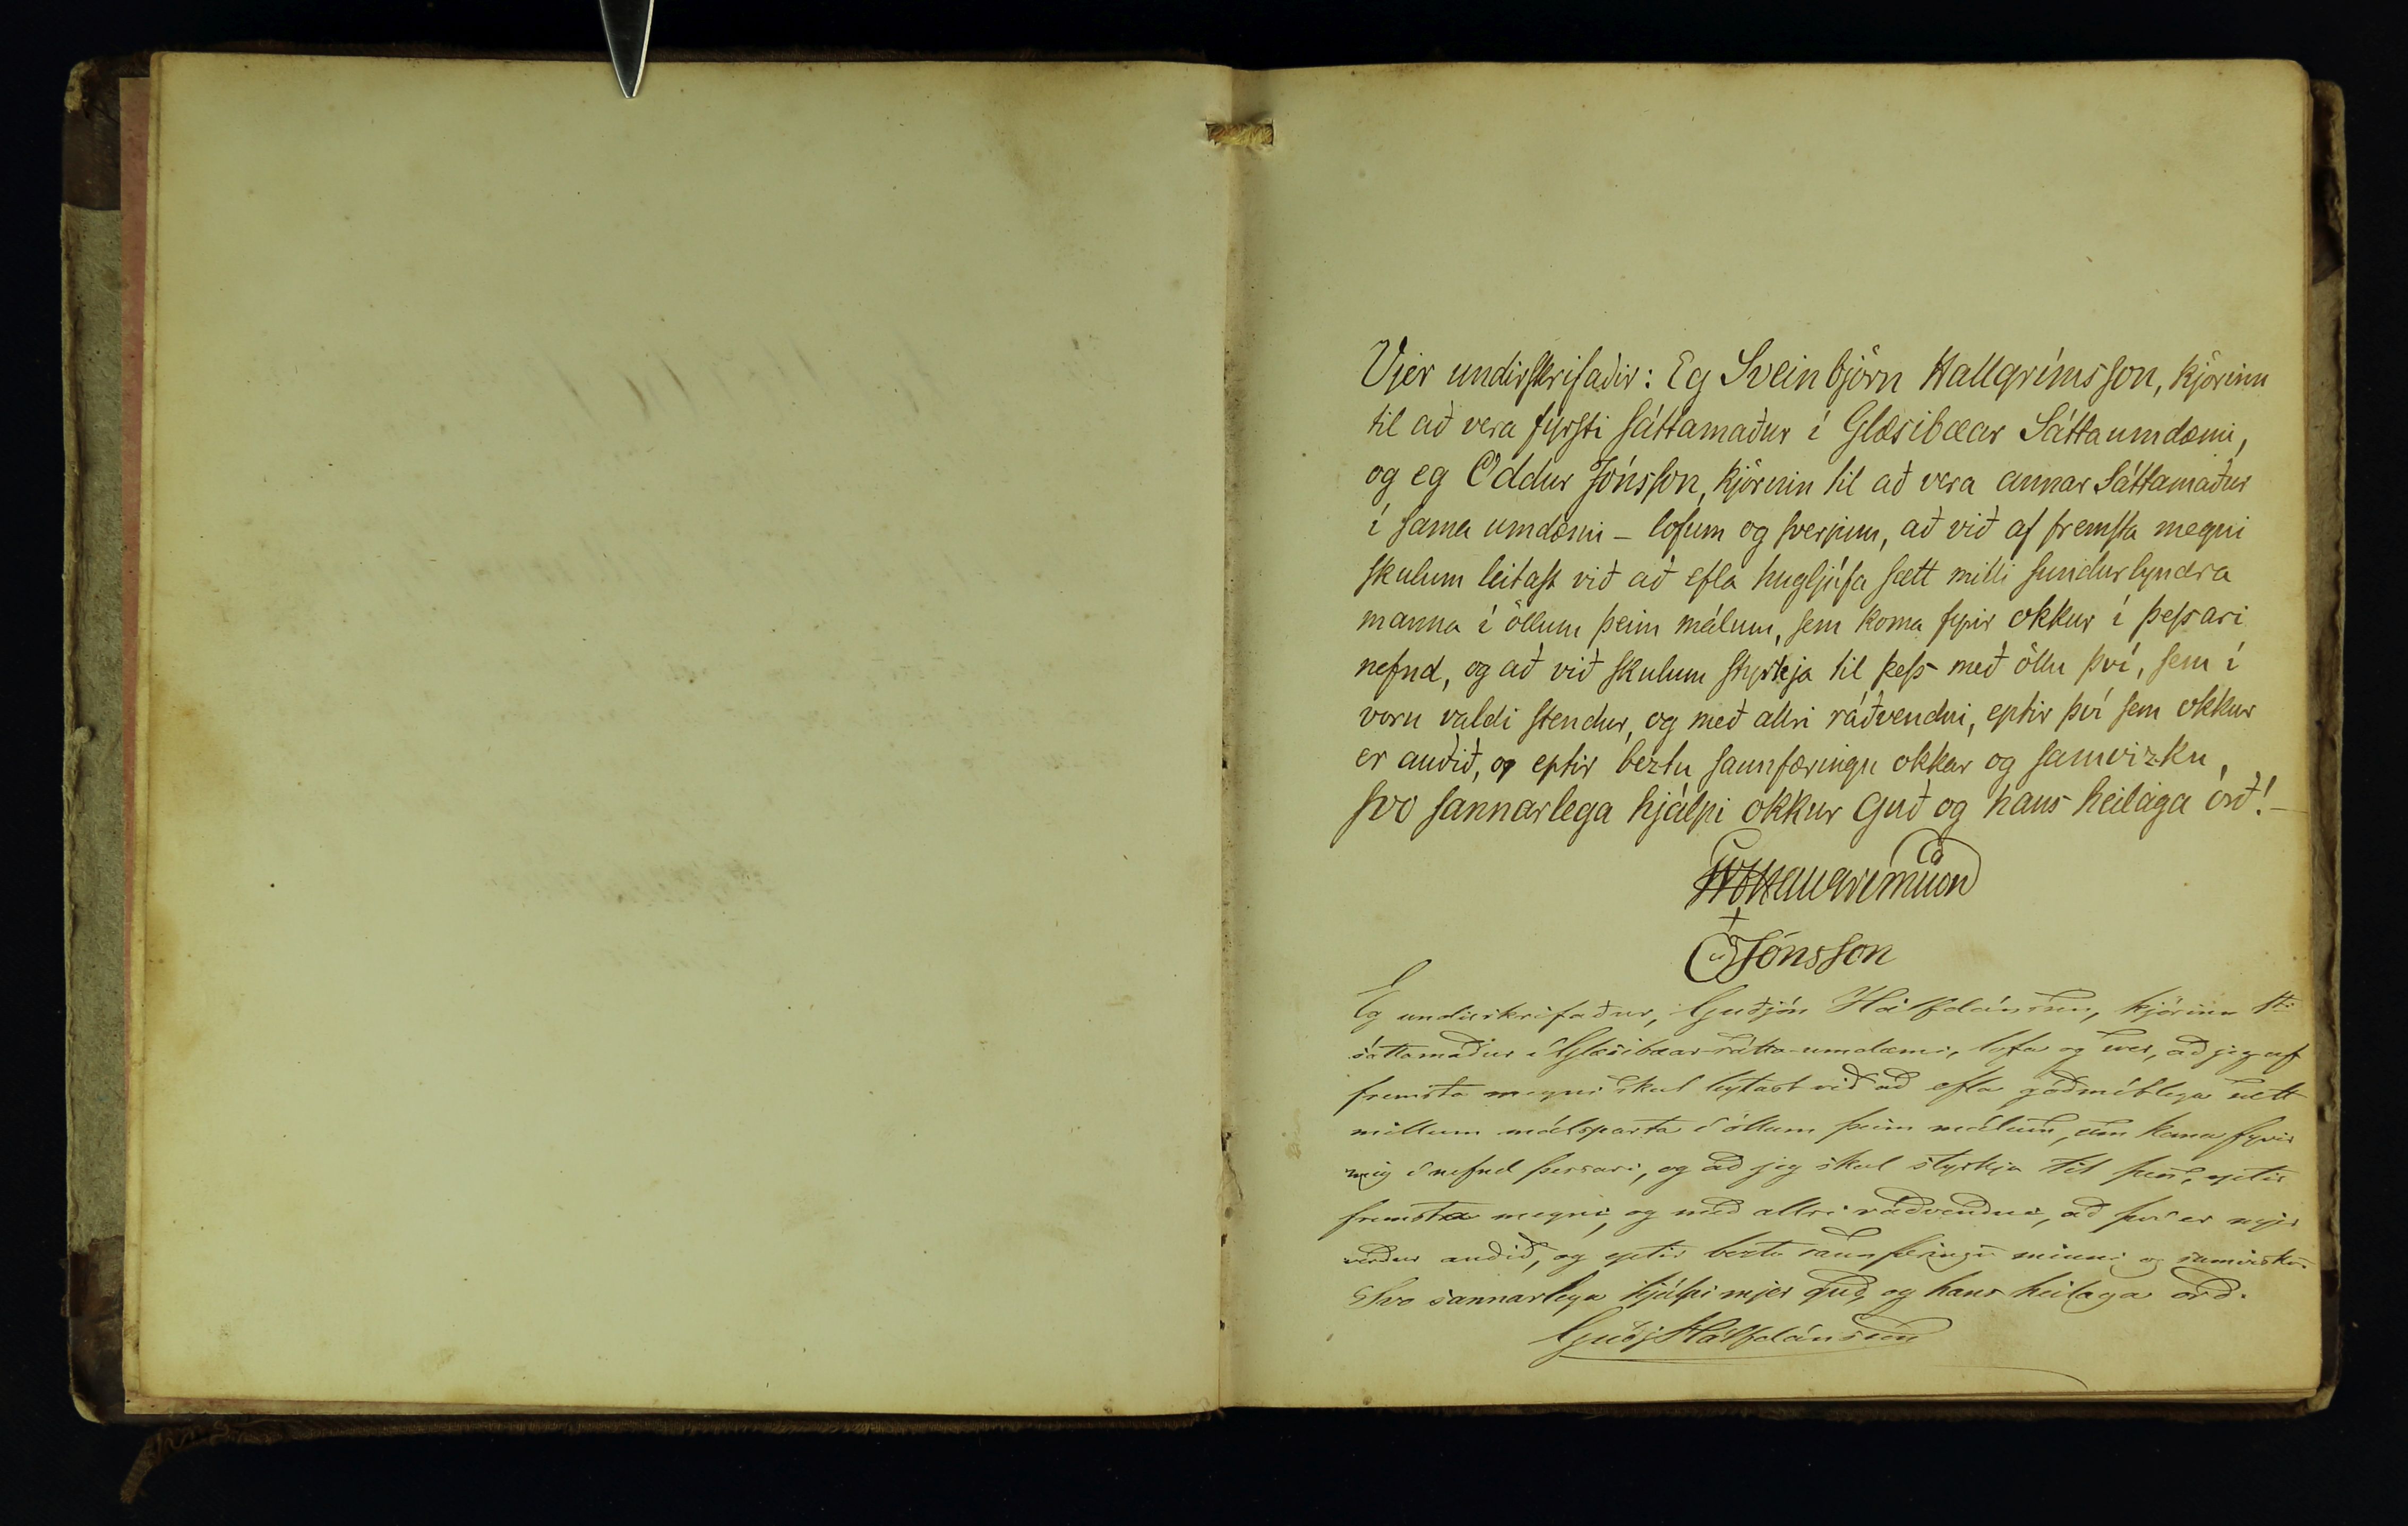 Vjer undirskrifaðir: Eg Sveinbjörn Hallgrímsson, kjörinn
til að vera fyrsti sáttamaður í Glæsibæar Sáttaumdæmi,
og eg Oddur Jónsson, kjörinn til að vera annar Sáttamaður
í sama umdæmi – lofum og sverjum, að við af fremsta megni
skulum leitast við að efla hugljúfa sætt milli sundurlyndra
manna í öllum þeim málum, sem koma fyrir okkur í þessari
nefnd, og að við skulum styrkja til þess með öllu því, sem í
voru valdi stendur, og með allri ráðvendni, eptir því sem okkur
er auðið, og eptir beztu sannfæringu okkar og samvizku,
svo sannarlega hjálpi okkur Guð og hans heilaga orð! –
SvbHallgrímsson
OJónsson
Eg undirskrifaður, Guðjón Hálfdánsson, kjörinn 1ti
sáttamaður í Glæsibæar-sátta-umdæmi, lofa og sver, að jeg af
fremsta megni skal leytast við að efla góðmótlega sætt
millum málsparta í öllum þeim málum, sem koma fyrir
mig í nefnd þessari, og að jeg skal styrkja til þess, eptir
fremsta megni, og með allri ráðvendni, að því er mjer
verður auðið, og eptir beztu sannfæringu minni og samvisku.
Svo sannarlega hjálpi mjer Guð, og hans heilaga orð.
GuðjHálfdánsson